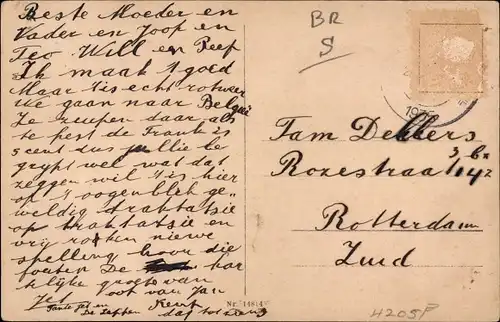 Beste Moeder en
Vader en Joop en
Teo Will en Peep
Ik maak 't goed
Maar 't is echt rotweer
We gaan naar België
Ze zuipen daar als
de pest de Frank is
5 cent dus jullie be
grypt wel wat dat
zeggen wil 't is hier
op 't oogenblik ge-
weldig traktatsie
op traktatsie en
vrij roken niewe
spelling hoor die
fouten De har
telijke groete van
Jet oot van Jan
Tante Jet en
De
dag tot zoons
BR
S
Fam Dekkers
Rozestraat
Rotterdam
Zuid
Nr. 1484
4205P